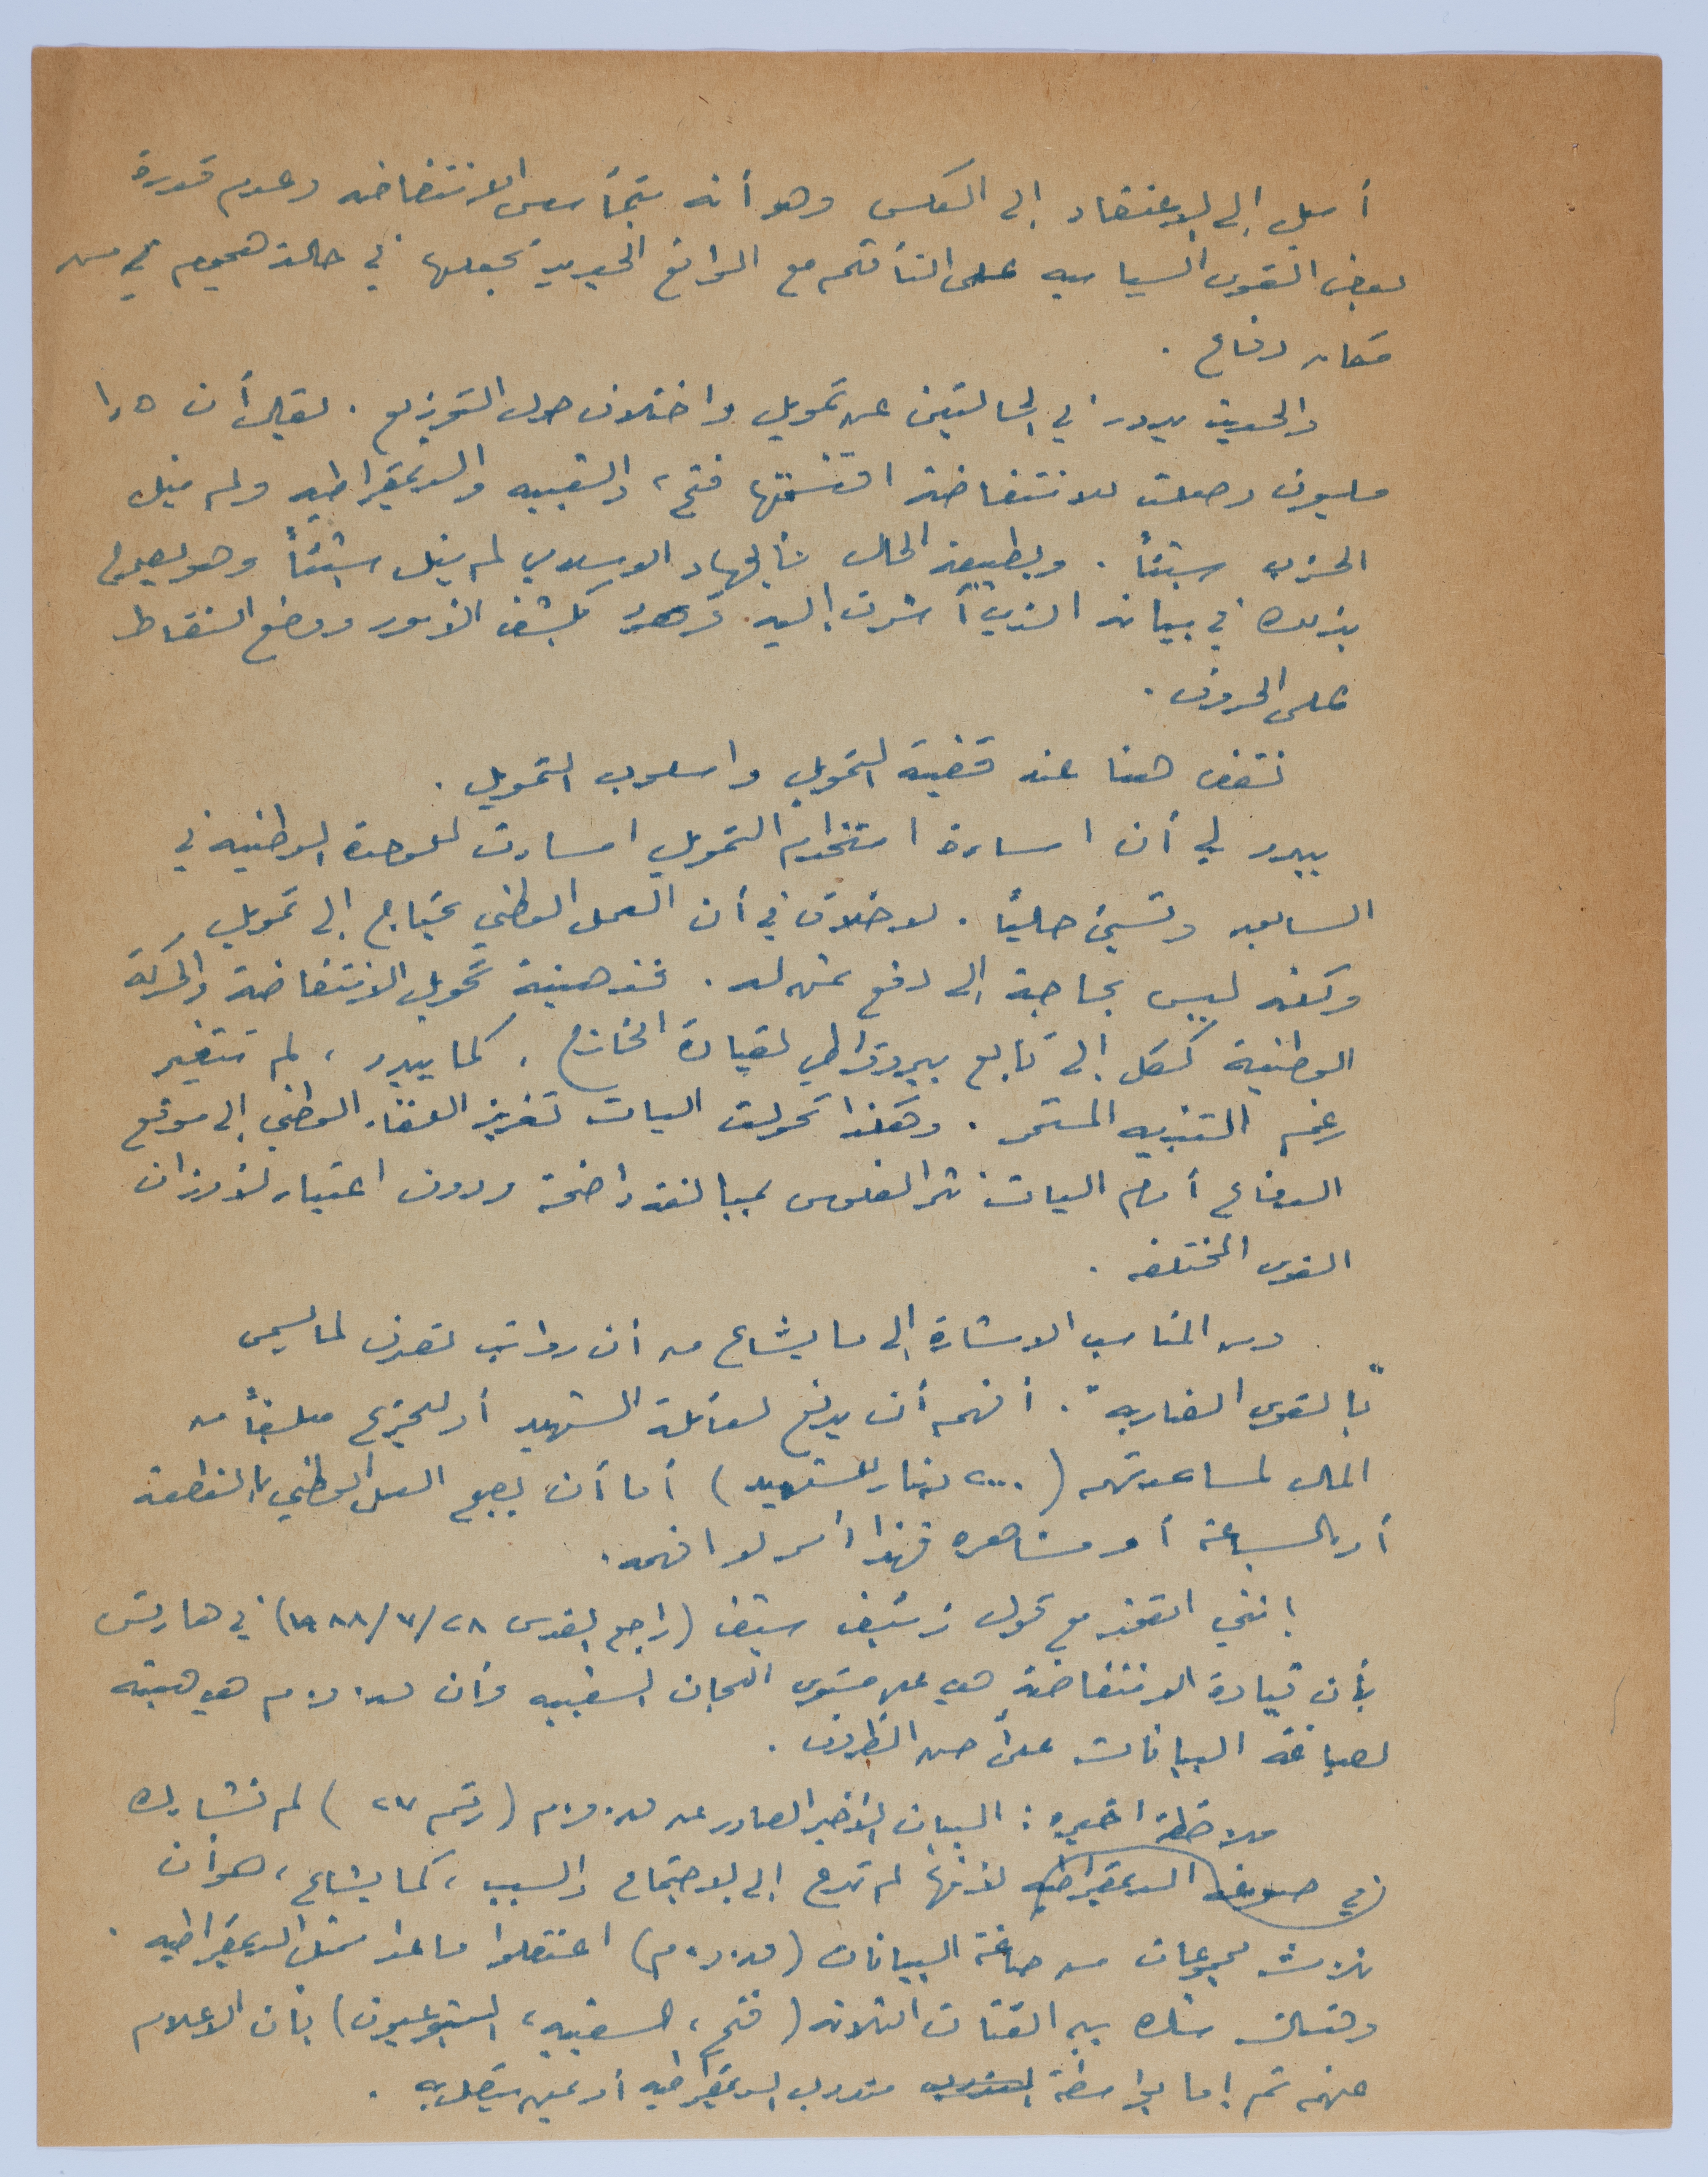 أميل إلى الاعتقاد إلى العكس وهو أنه بتمأسس الانتفاضه وعدم قدرة
بعض القوى السياسيه على التأقلم مع الواقع الجديد يجعلها في حالة هجوم في
مكان دفاع .
والحديث يدور في الحالتين عن تمويل واختلاف حول التوزيع . يقال أن ١٫٥
مليون وصلت للانتفاضة اقتسمتها فتح ، والشعبيه والديمقراطيه ولم ينل
الحزب شيئاً . وبطبيعة الحال فالجهاد الاسلامي لم ينل شيئاً وهو يصرح
بذلك في بيانه الذي أشرت إليه بكشف الأمور ووضع النقاط
على الحروف .
نقف هنا عند قضية التمويل واسلوب التمويل .
يبدو لي أن اساءة استخدام التمويل اساءت للوحدة الوطنيه في
السابق وتسيئ حالياً . لا خلاف في أن العمل الوطني يحتاج إلى تمويل
ولكنه ليس بحاجة إلى دفع ثمن له . فذهنية تحويل الانتفاضة والحركة
الوطنية ككل إلى تابع بيروقراطي لقيادة الخارج ، كما يبدو ، لم تتغير
رغم التنبيه المستمر . وهكذا تحولت اليات تعزيز العطاء الوطني إلى موقع
الدفاع أمام اليات نثر الفلوس بمبالغة واضحة ودون اعتبار لأوزان
القوى المختلفه .
ومن المناسب الاشارة إلى ما يشاع من أن رواتب تصرف لما يسمى
"بالقوى الضاربه" . أفهم أن يدفع لعائلة الشهيد أو للجريح مبلغاً من
المال لمساعدتهم (٢٠٠٠ دينار للشهيد) أما أن يصبح العمل الوطني بالقطعة
أو بالساعة أو مشاهره فهذا أمر لا افهمه .
إنني اتفق مع تحول زئيف شيف (راجع القدس ٢٨/٧/١٩٨٨) في هارتس
بأن قيادة الانتفاضة هي على مستوى اللجان الشعبيه وأن ق.و.م هي هيئه
لصياغة البيانات على أحسن الظروف .
ملاحظة اخيره : البيان الأخير الصادر عن ق.و.م (رقم ٢٧) لم تشارك
في صوغه الديمقراطيه لأنها لم تدع إلى الاجتماع والسبب ، كما يشاع ، هو أن
ثلاث مجموعات من صاغة البيانات (ق.و.م) اعتقلوا ما عدا ممثل الديمقراطيه .
وهناك شك بين الفئات الثلاثه (فتح ، الشعبيه ، الشيوعيون) بأن الاعلام
عنهم تم إما بواسطة مندوب الديمقراطيه أو عمن يتصل به .